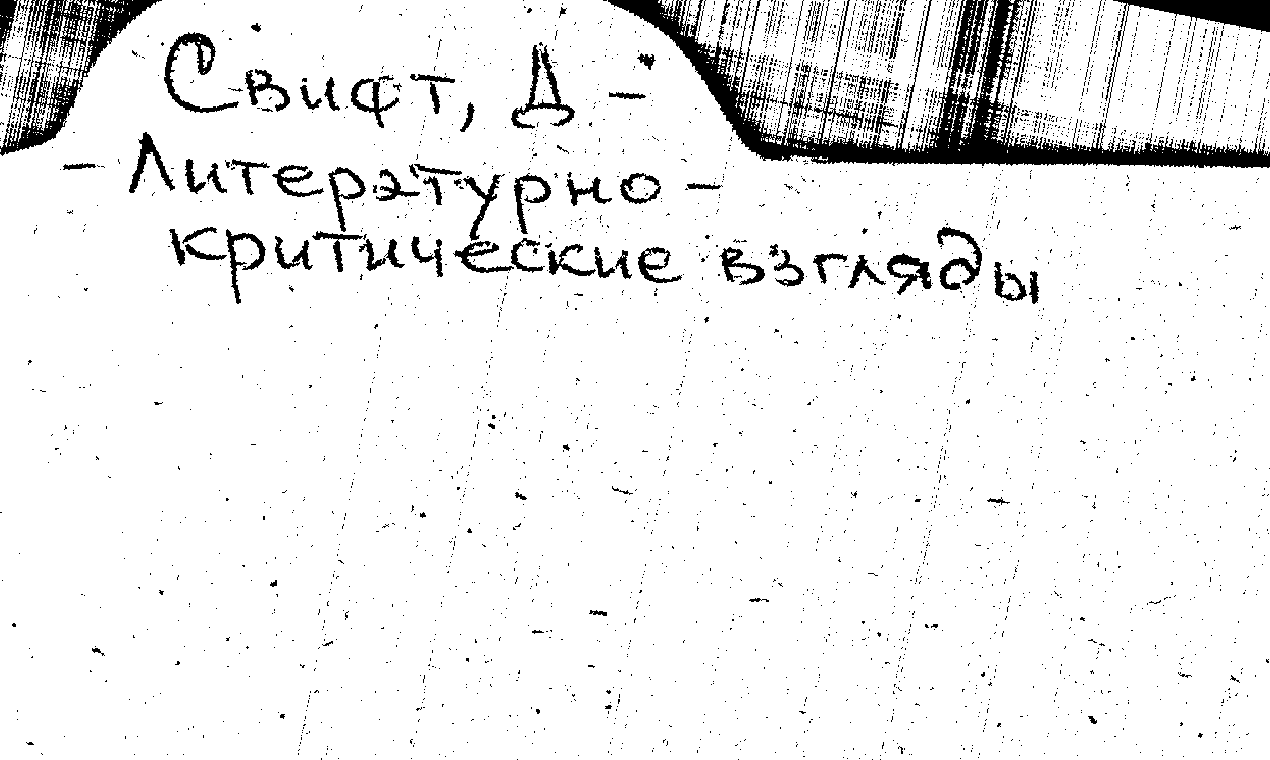 Свифт, Д -
- Литературно -
критические взгляды